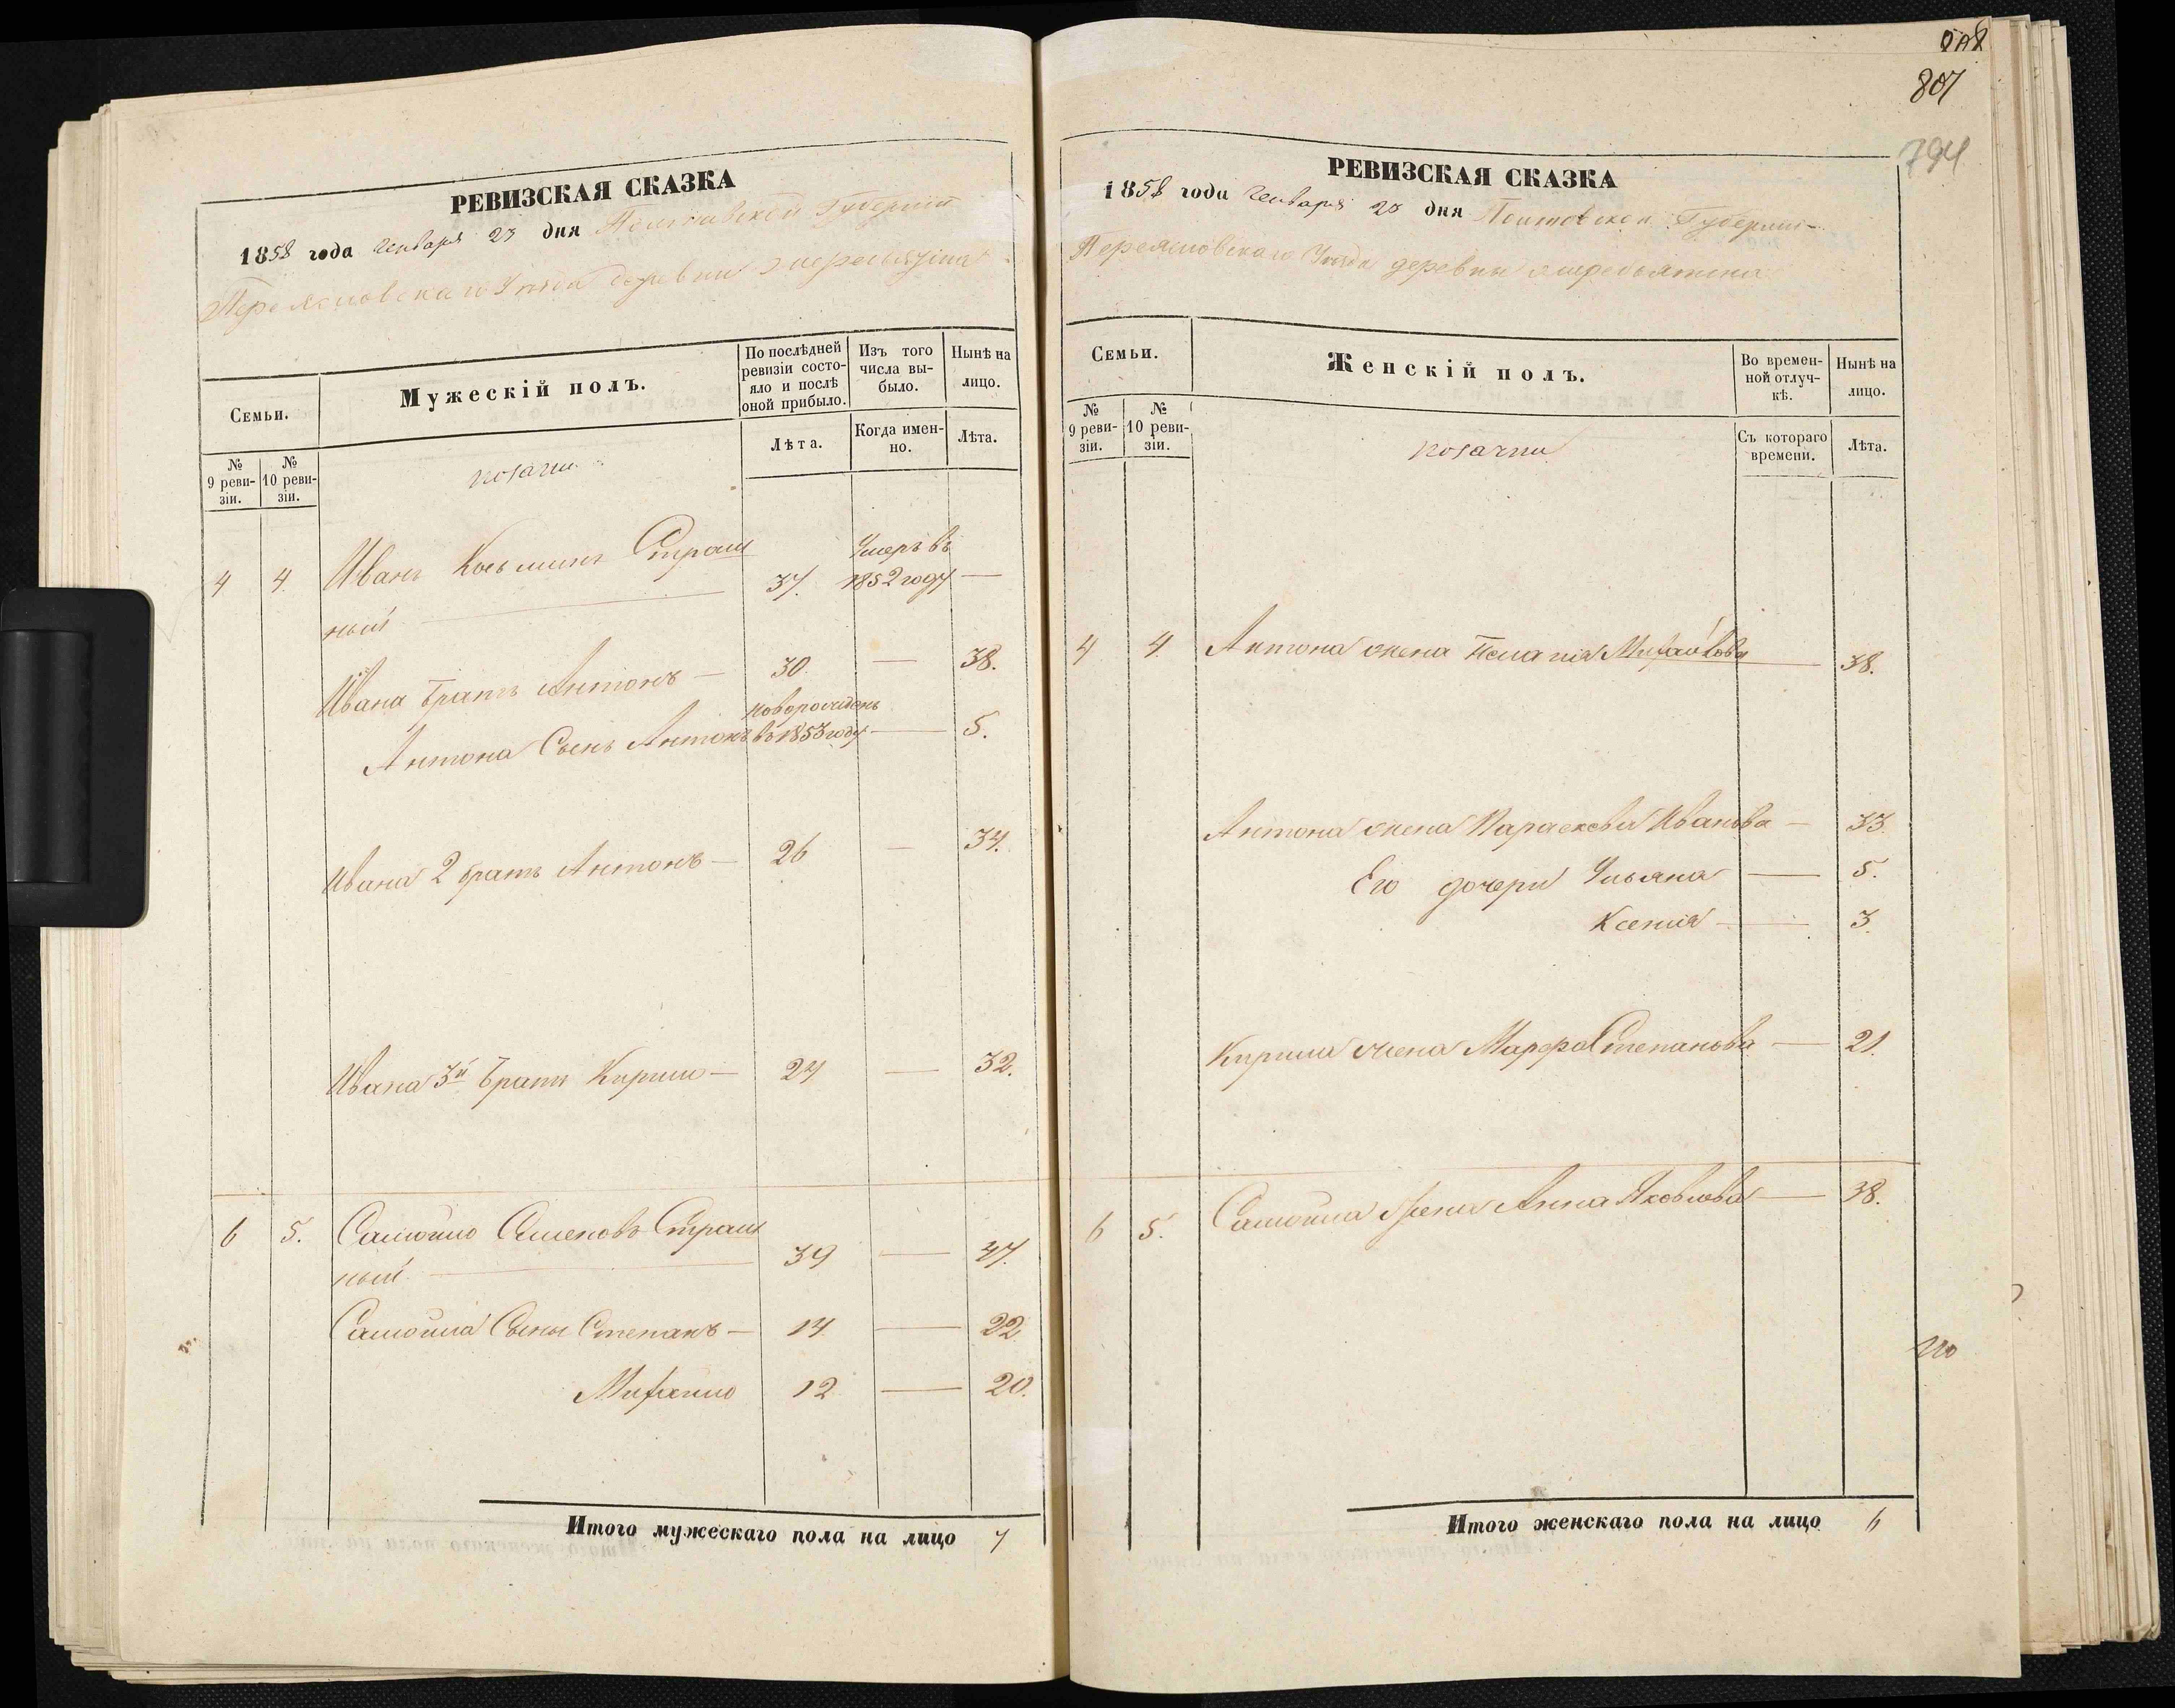 РЕВИЗСКАЯ СКАЗКА
1858 года Генваря 23 дня Полтавской Губерніи
Переяславскаго Уезда деревни
Семьи.
№ 9 реви-зіи.
№ 10 реви-зіи.
Мужескій полъ.
По послѣдней ревизіи состо-яло и послѣ оной прибыло.
Лѣта.
Изъ того числа вы-было.
Когда имен-но.
Нынѣ на лицо.
Лѣта.
козачки
4 4. Иванъ Косьминъ Страш
ный 37. Умеръ въ 1852 году —
Ивана братъ Антонъ — 30 — 38.
Антона Сынъ Антонъ новорожденъ въ 1853 году — 5.
Ивана 2 братъ Антонъ — 26 — 34.
Ивана 3й братъ Кирило — 24 — 32.
6 5. Самойло Семеновъ Страш
ный 39 — 47.
Самойла Сыны Степанъ — 14 — 22.
Михайло 12 — 20.
Итого мужескаго пола на лицо 7
848
807
794
РЕВИЗСКАЯ СКАЗКА
1858 года Генваря 23 дня Полтавской Губерніи
Переяславскаго Уезда деревни
Семьи.
№ 9 реви-зіи.
№ 10 реви-зіи.
Женскій полъ.
Во времен-ной отлуч-кѣ.
Съ котораго времени.
Нынѣ на лицо.
Лѣта.
козачки
4 4. Антона жена Пелагія Михайлова — 38.
Антона жена Параскева Иванова — 33.
Его дочери Ульяна — 5.
Ксенія — 3.
Кирила жена Марфа Степанова — 21.
6 5. Самойла жена Анна Яковлева — 38.
Итого женскаго пола на лицо 6